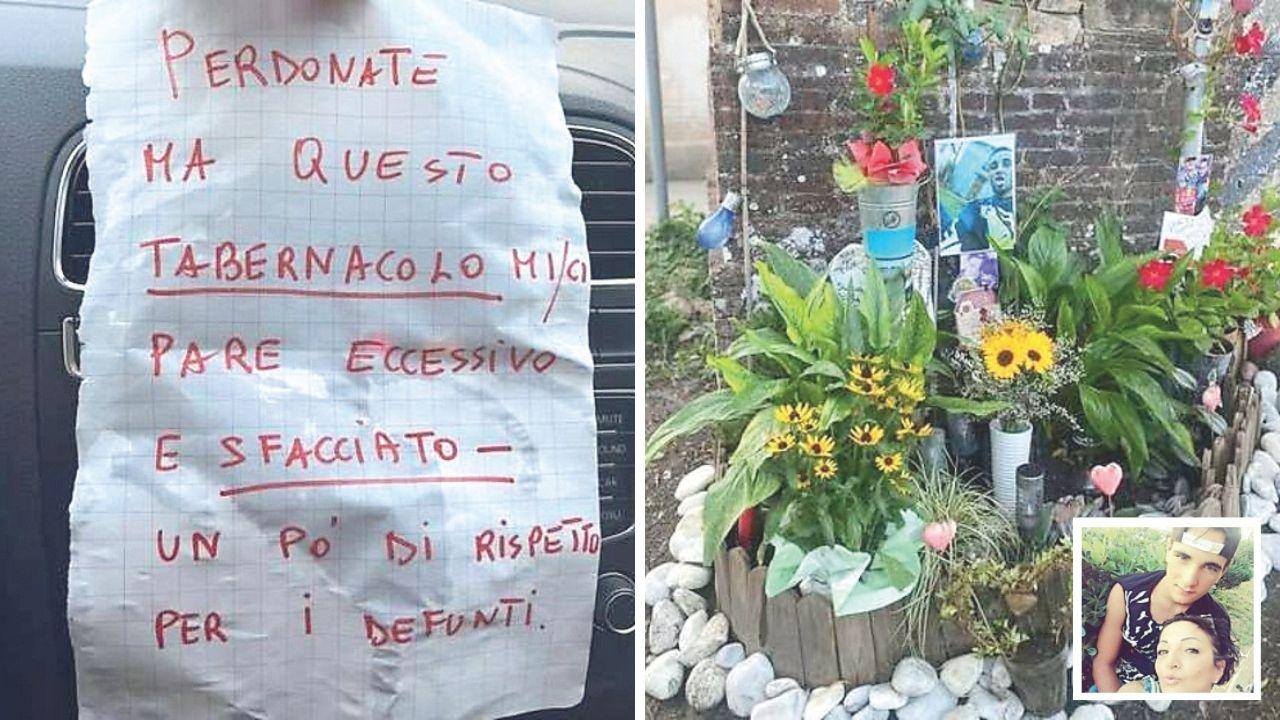 PERDONATE
MA QUESTO
TABERNACOLO MI/CI
PARE ECCESSIVO
E SFACCIATO —
UN PÒ DI RISPETTO
PER I DEFUNTI.